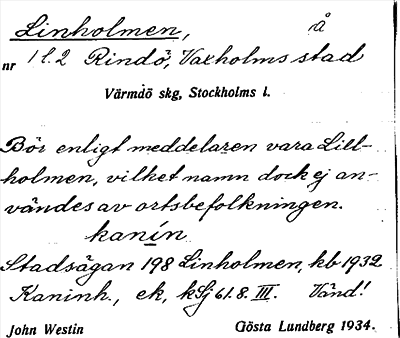 Linholmen, å
nr 1 l. 2 Rindö, Vaxholms stad
Värmdö skg, Stockholms l.
Bör enligt meddelaren vara Lill-
holmen, vilket namn dock ej an-
vändes av ortsbefolkningen.
kanín
Stadsägan 198 Linholmen, kb 1932
Kaninh., ek, kSj 61.8. III. Vänd!
John Westin Gösta Lundberg 1934.